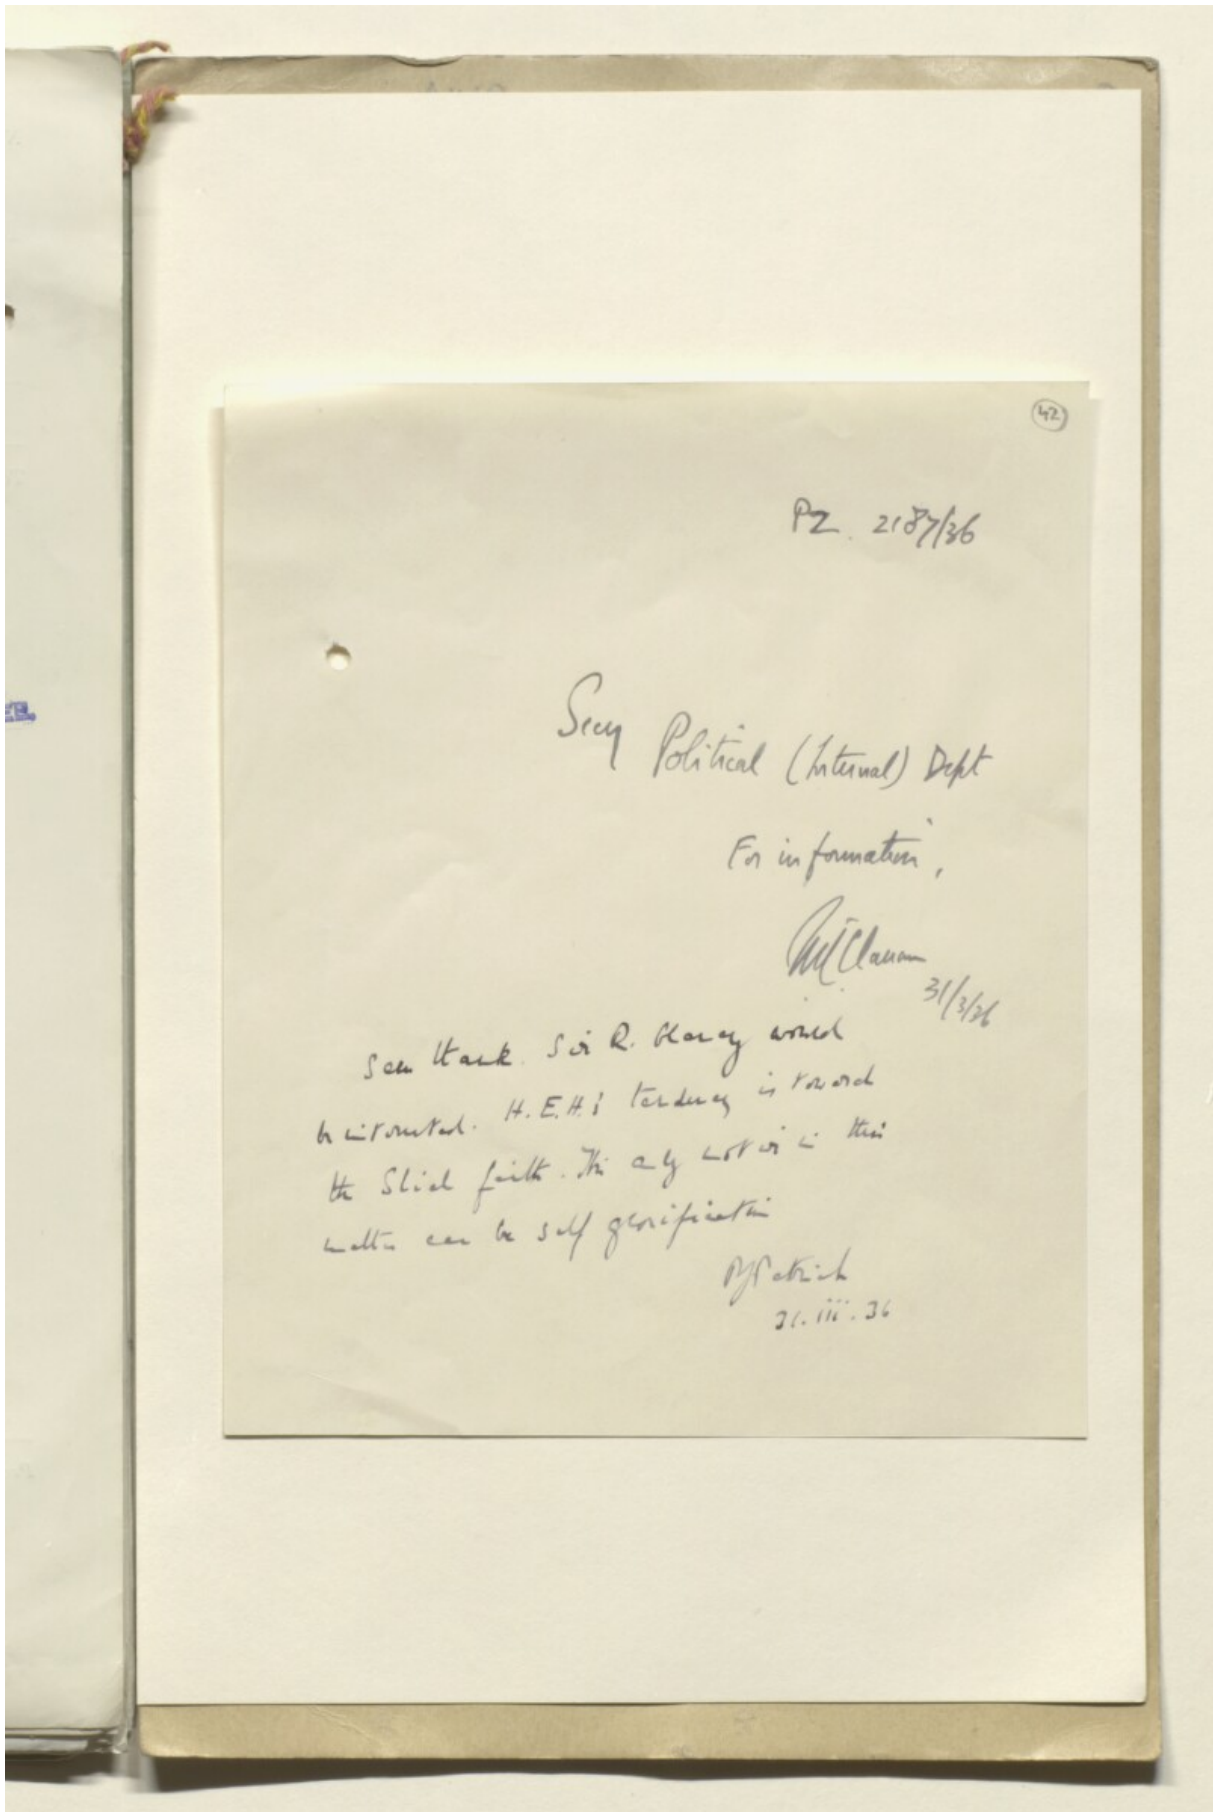 42
PZ. 2187/36
Secy Political (Internal) Dept
For information,
31/3/36
Seen thank. Sir R. Glancy would
be interested. H.E.H.'s tendency is toward
the Shiah faith. The only motive in this
matter can be self glorification
PJPatrick
31.iii.36